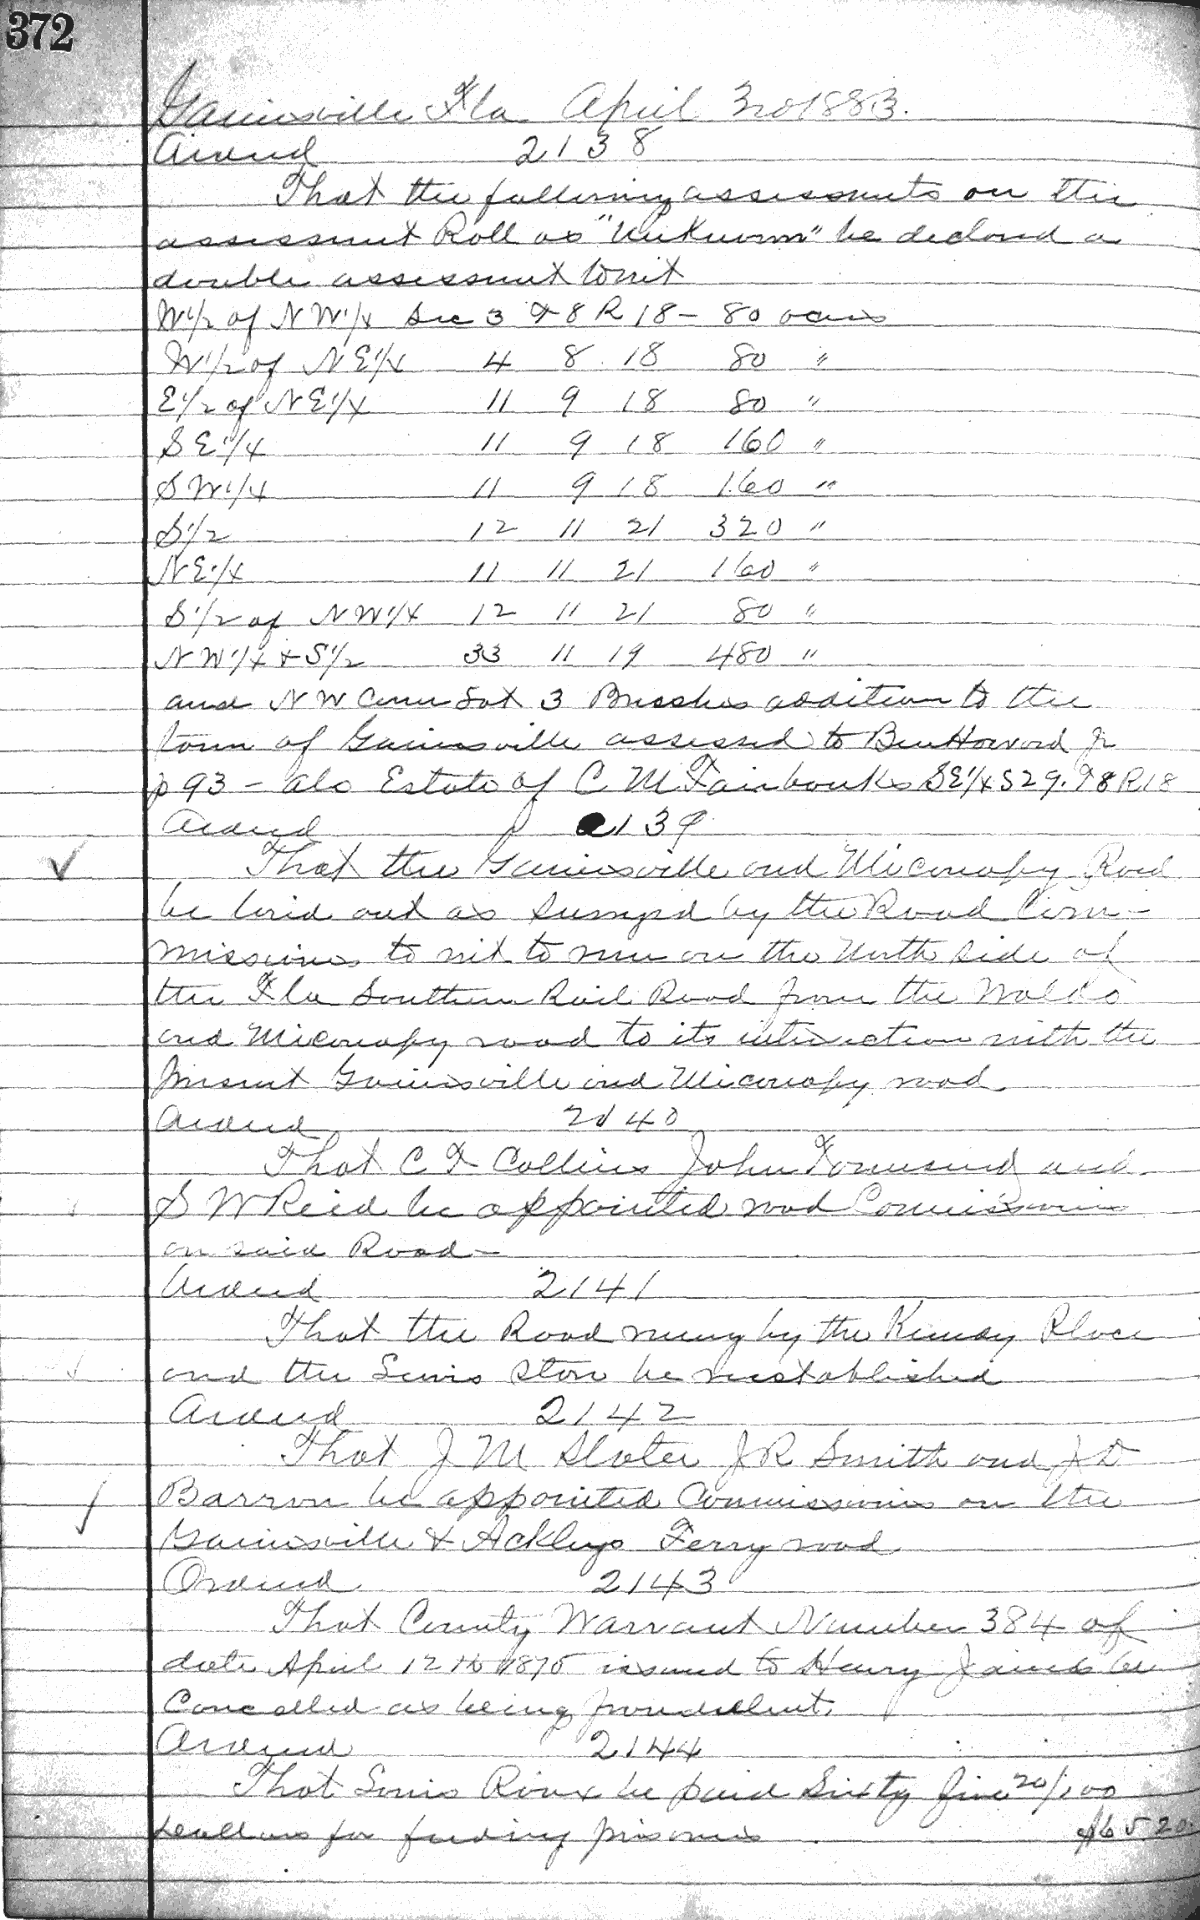 372
Gainesville Fla April 3rd 1883.
Ordered 2138
That the following assessments on the
assessment Roll as "Unknown" be declared a
double assessment towit
W1/2 of NW1/4 Sec 3 T8 R18 - 80 acres
W1/2 of NE1/4 4 8 18 80 "
E1/2 of NE1/4 11 9 18 80 "
SE1/4 11 9 18 160 "
SW1/4 11 9 18 160 "
S1/2 12 11 21 320 "
NE1/4 11 11 21 160 "
S1/2 of NW1/4 12 11 21 80 "
NW1/4 + S1/2 33 11 19 480 "
and NW Corner Lot 3 addition to the
town of Gainesville assessed to Ben Howard Jr
p 93 - also Estate of C M Fairbanks SE1/4 S29. T8 R18
Ordered 2139
That the Gainesville and Micanopy Road
be laid out as surveyed by the Road Com-
missioners to wit to run on the North side of
the Fla Southern Rail Road from the Waldo
and Micanopy road to its intersection with the
present Gainesville and Micanopy road
Ordered 2140
That C F Collins John Townsend and
S W Reid be appointed road Commissioners
on said Road -
Ordered 2141
That the Road runing by the Place
and the Lewis Store be reestablished
Ordered 2142
That J M Slater J R Smith and J D
Barron be appointed Commissioners on the
Gainesville & Ackleys Ferry road
Ordered 2143
That County Warrant Number 384 of
date April 12th 1875 issued to Henry James be
Cancelled as being fraudulent.
Ordered 2144
That Louis Roux be paid Sixty five 20/100
dollars for feeding prisoners $65 20